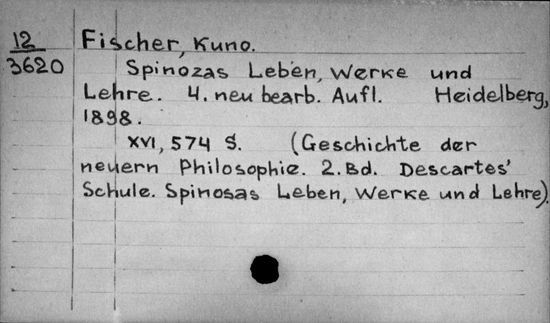 12
3620
Fischer, Kuno.
Spinozas Leben, Werke und
Lehre. 4. neu bearb. Aufl. Heidelberg,
1898.
XVI, 574 S. (Geschichte der
neuern Philosophie. 2. Bd. Descartes'
Schule. Spinosas Leben, Werke und Lehre).